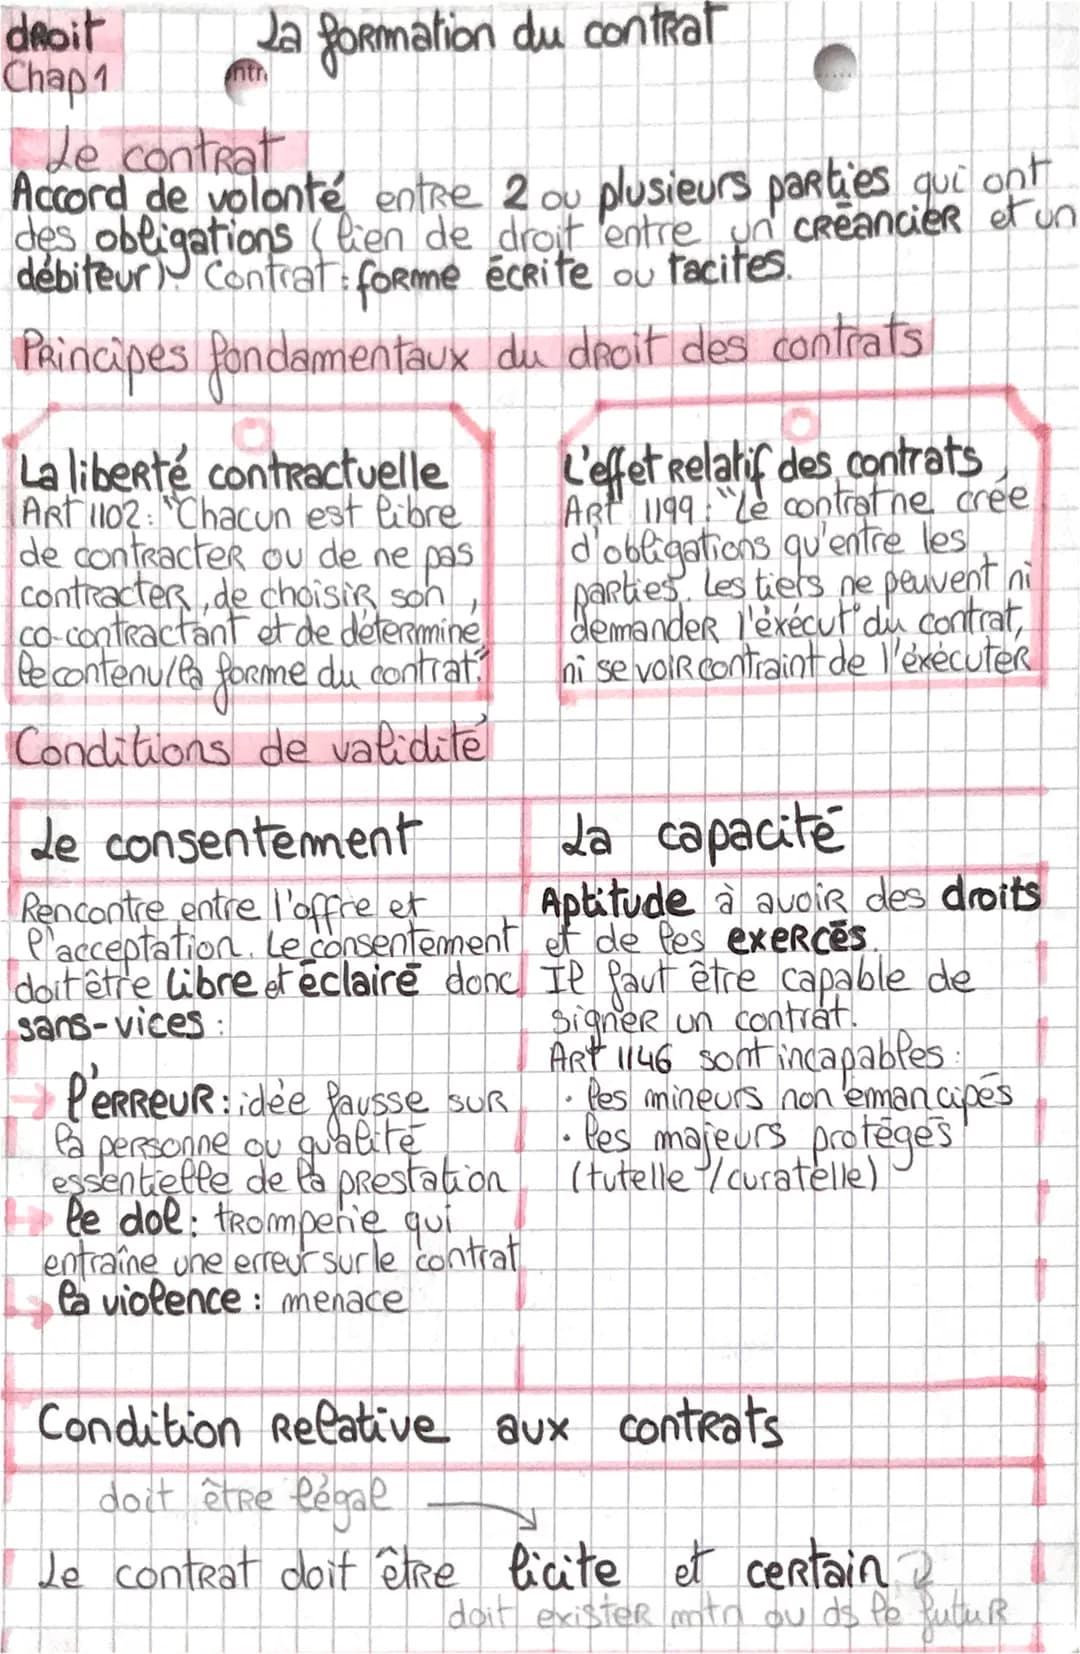 droit
La formation du contrat
Chap 1
ntr
Le contrat
Accord de volonté entre 2 ou plusieurs parties qui ont
des obligations (lien de droit entre un créancier et un
débiteur). Contrat : forme écrite ou tacites.
Principes fondamentaux du droit des contrats
La liberté contractuelle
Art 1102 : "Chacun est libre
de contracter ou de ne pas
contracter, de choisir son
co-contractant et de déterminé
le contenu/la forme du contrat."
L'effet relatif des contrats
Art 1199 : "Le contrat ne crée
d'obligations qu'entre les
parties. Les tiers ne peuvent ni
demander l'éxécut° du contrat,
ni se voir contraint de l'éxécuter
Conditions de validité
Le consentement
Rencontre entre l'offre et
l'acceptation. Le consentement
doit être libre et éclairé donc
sans-vices :
→ l'erreur : idée fausse sur
la personne ou qualité
essentielle de la prestation
→ le dol : tromperie qui
entraîne une erreur sur le contrat
→ la violence : menace
La capacité
Aptitude à avoir des droits
et de les exercés.
Il faut être capable de
signer un contrat.
Art 1146 sont incapables :
• les mineurs non émancipés
• les majeurs protégés
(tutelle / curatelle)
Condition relative aux contrats
doit être légal
Le contrat doit être licite et certain
doit exister mtn ou ds le futur